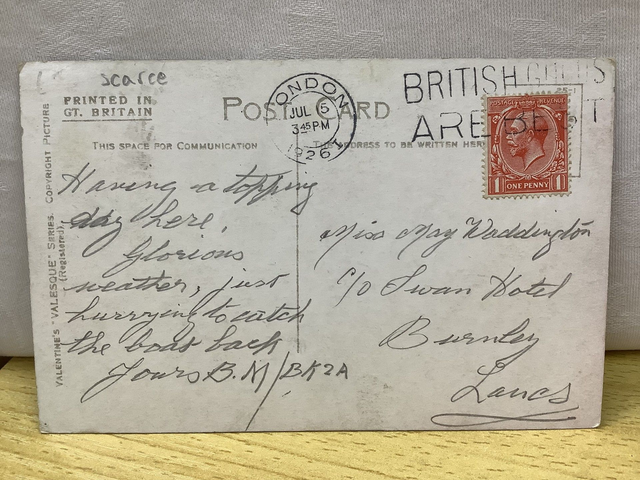 scarce
PRINTED IN
GT. BRITAIN
POST CARD
LONDON
JUL 5
3 45 PM
1926
BRITISH GOODS
ARE BEST
POSTAGE REVENUE
1 ONE PENNY 1
THIS SPACE FOR COMMUNICATION
THE ADDRESS TO BE WRITTEN HERE
VALENTINE'S "VALESQUE" SERIES. COPYRIGHT PICTURE
(Registered).
Having a topping
day here,
Glorious
weather, just
hurrying to catch
the boat back
Yours B.M/BK2A
Miss May Waddington
c/o Swan Hotel
Burnley
Lancs